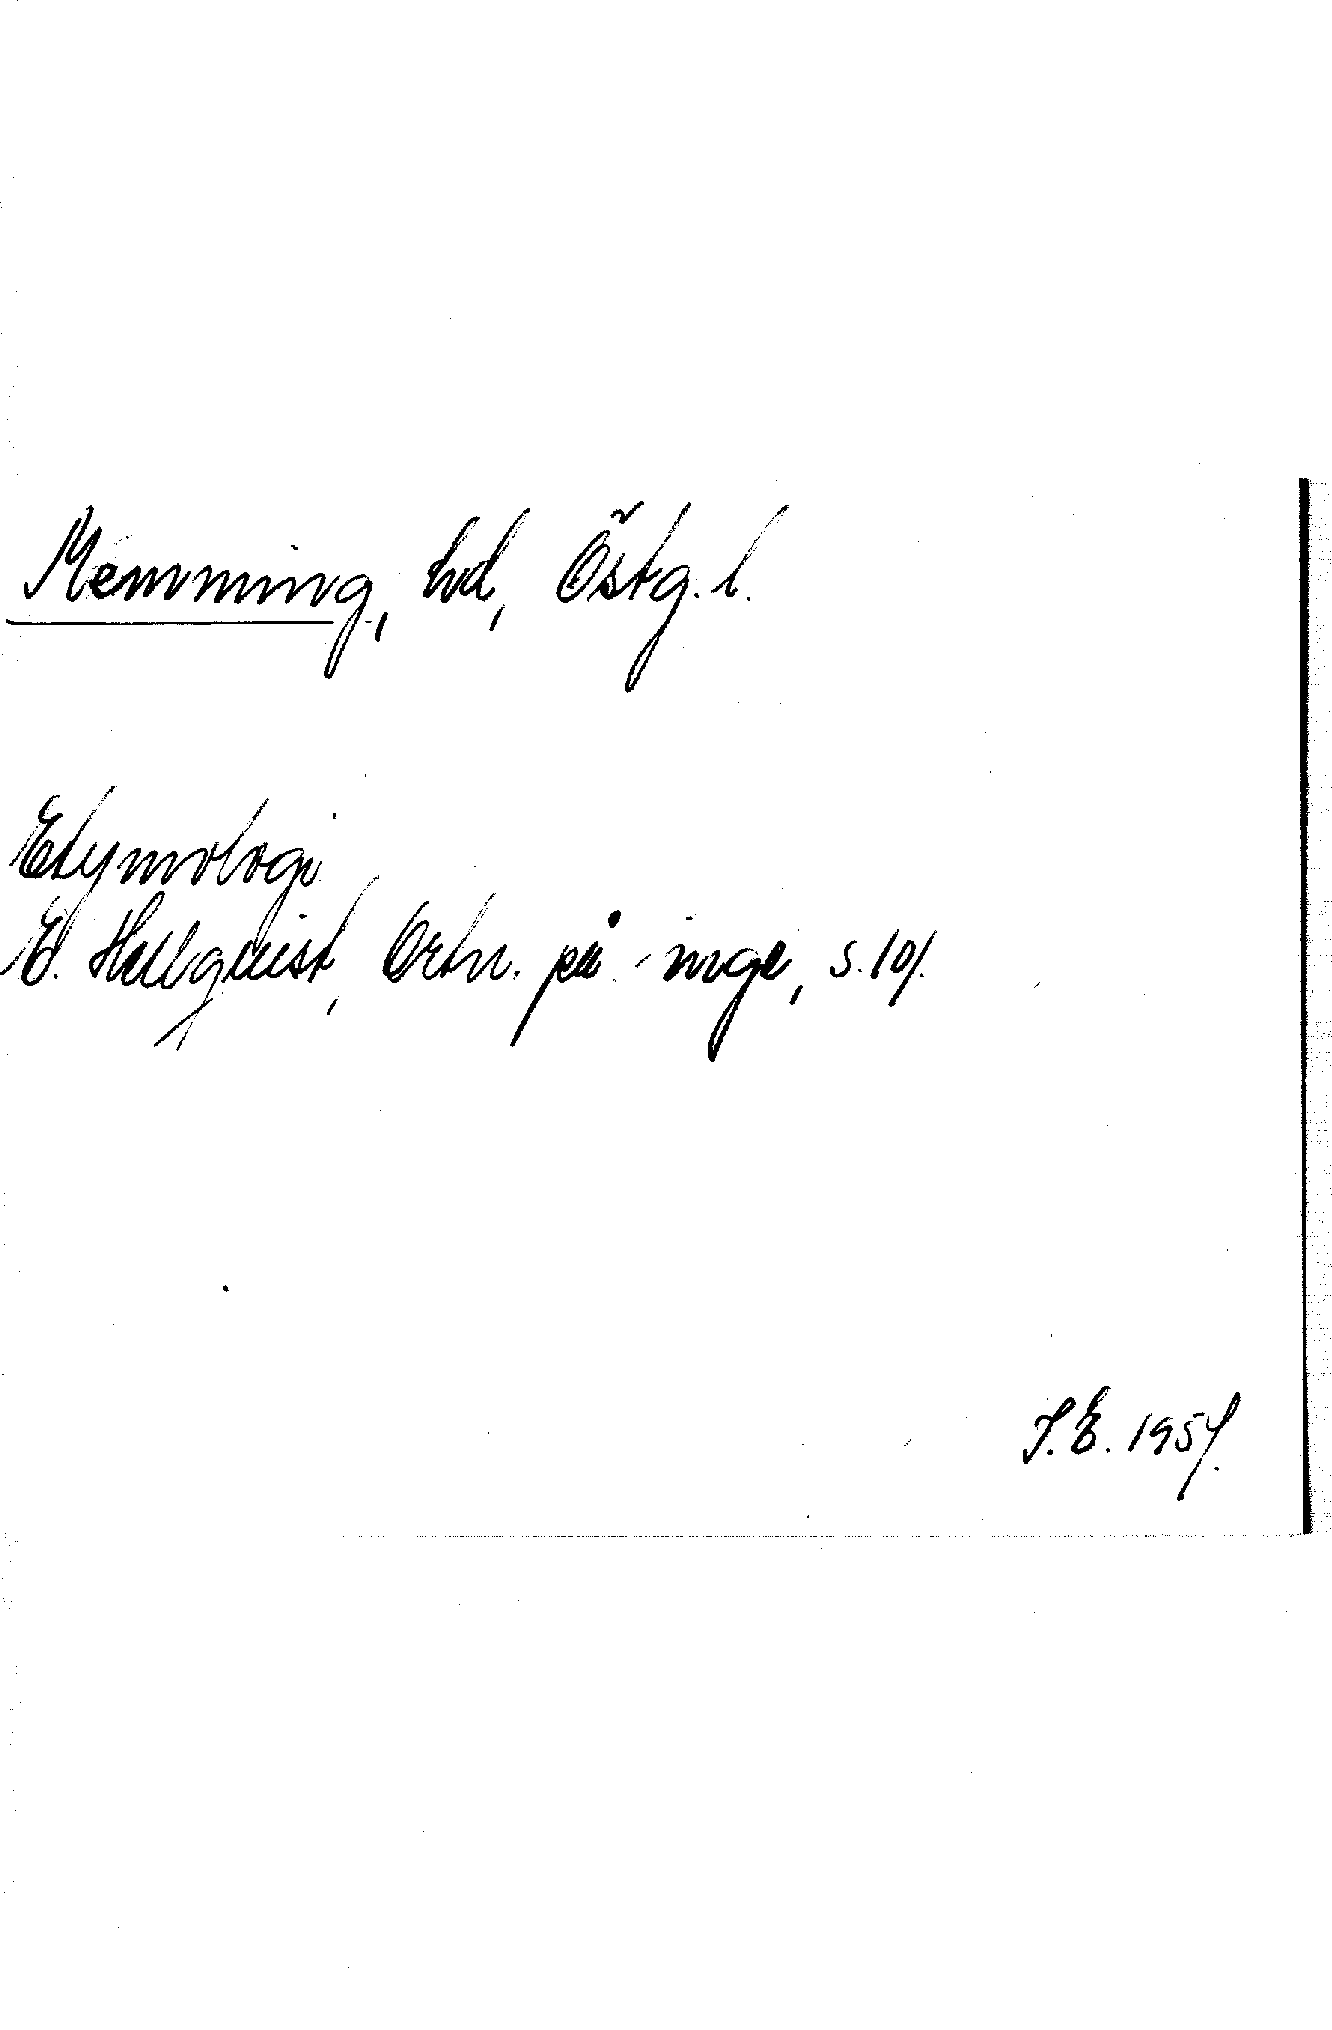 Memming, hd, Östg. l.
Etymologi
E. Hellquist, Ortn. på -inge, s. 101.
J. E. 1951.